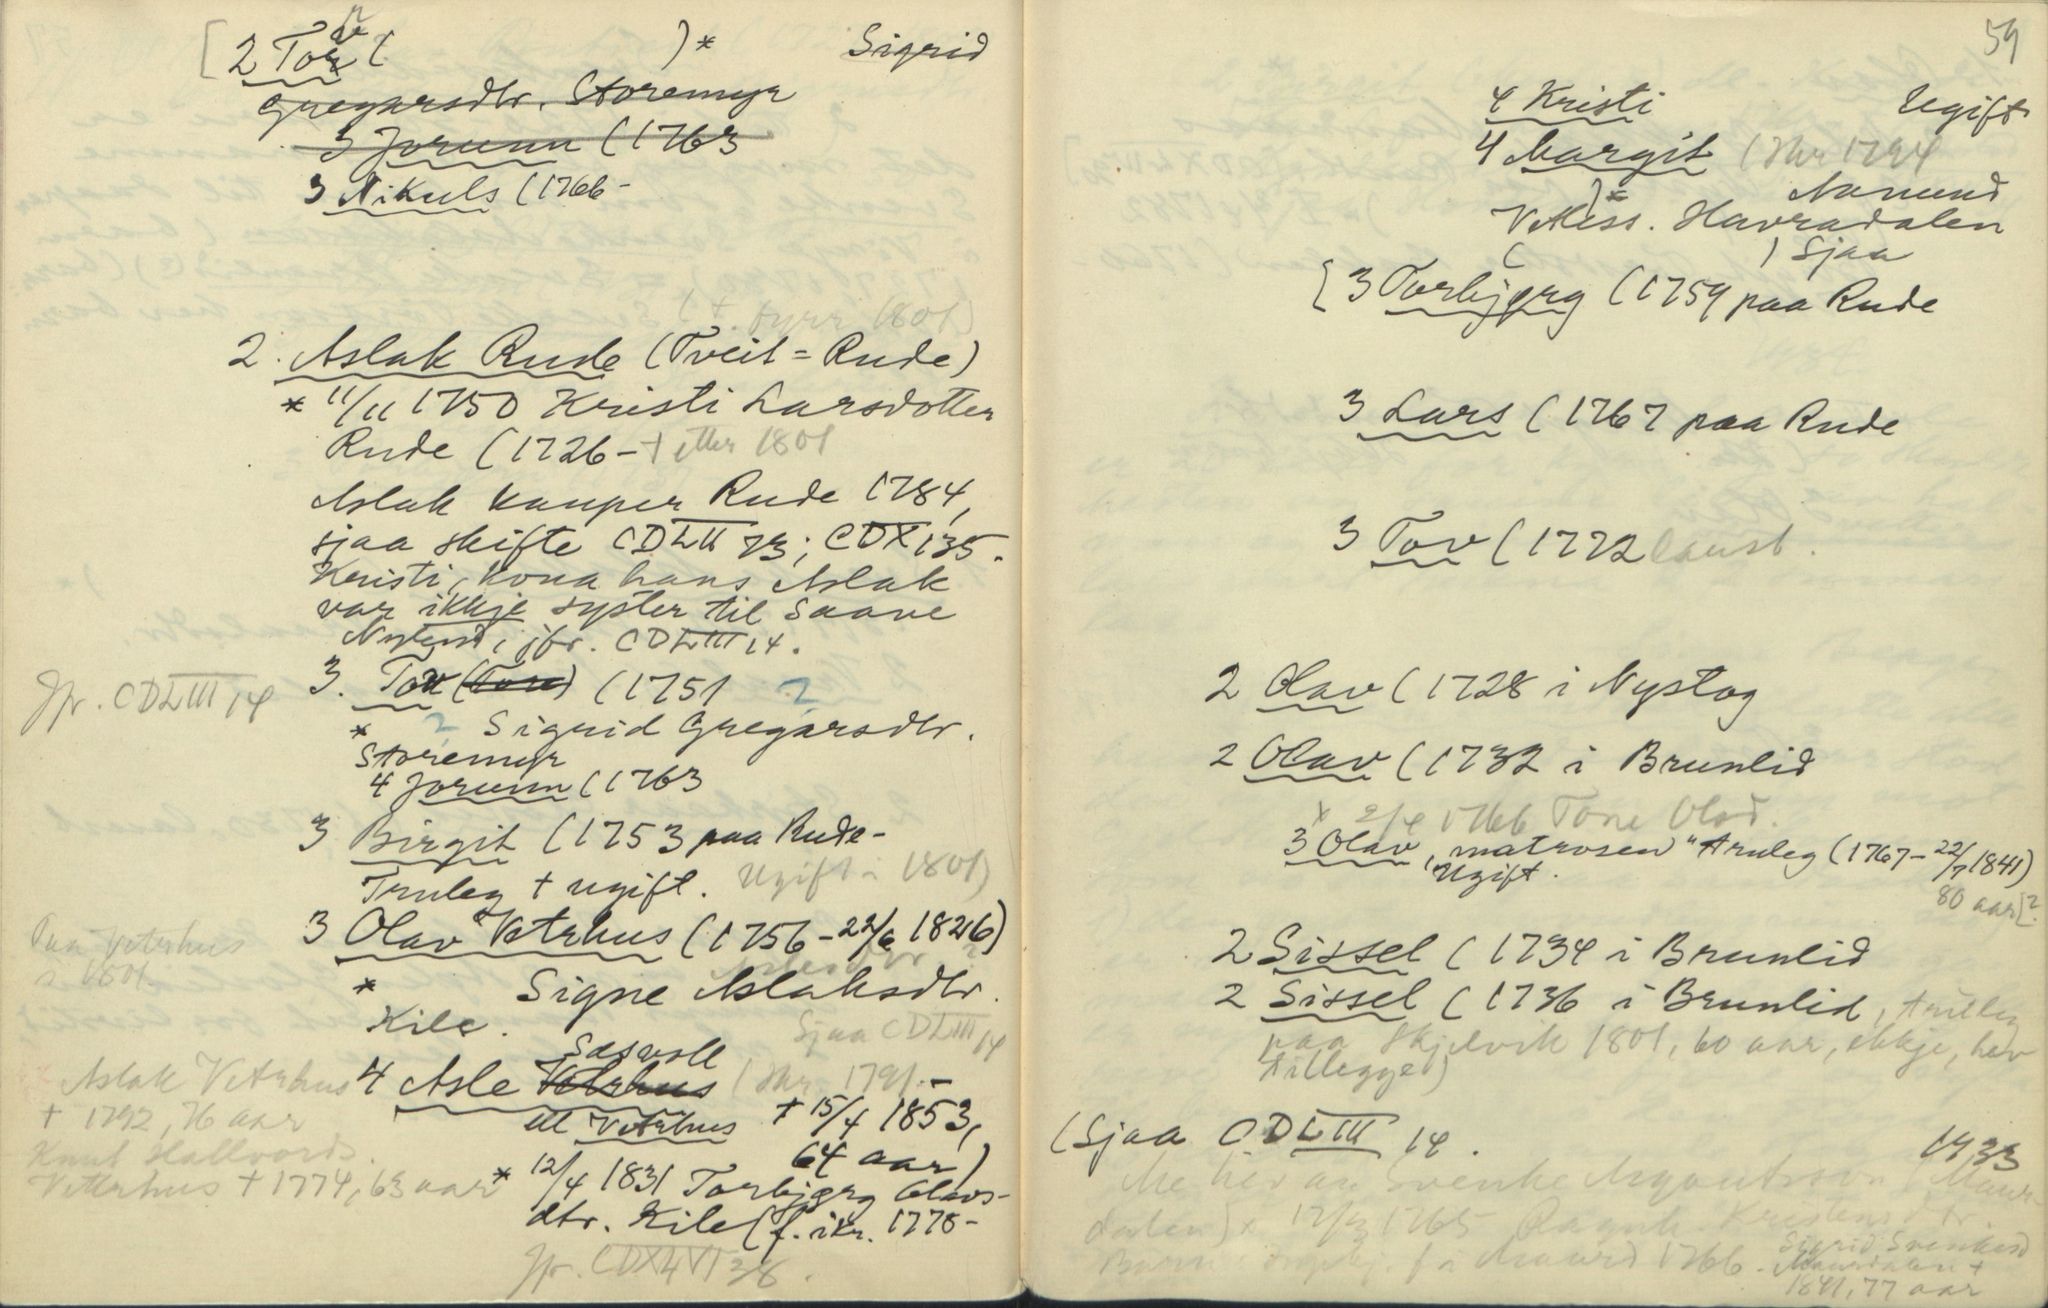 [2 Tov (                )* Sigrid
Gregarsdtr. Storemyr
3 Jorunn (1763
3 Nikuls (1766-
(+ fyrr 1801)
2. Aslak Rude (Tveit = Rude)
* 11/11 1750 Kristi Larsdotter
Rude (1726- + etter 1801
Aslak kauper Rude 1784,
sjaa skifte CDLII 73; CDX 135.
Kristi, kona hans Aslak
var ikkje syster til Saave
jfr. CDLIII 14.
Jfr. CDLIII 14
3. Tov (Tore) (1751 ?
* ? Sigrid Gregarsdtr.
Storemyr
4 Jorunn (1763
3 Birgit (1753 paa Rude-
Truleg + ugift. Ugift i 1801)
3 Olav Vetrhus (1756-22/6 1826)
Paa Veterhus
i 1801.
* Signe Aslaksdtr.
Kile. Sjaa CDLIII 14
Sasvoll
4 Asle Vetrhus (Ikr. 1791.-
Aslak Vetrhus
+ 1792, 76 aar
Knut Hallvords.
Vetterhus + 1774, 63 aar
ell Vetrhus + 15/4 1853,
64 aar)
* 12/4 1831 Torbjørg Olavs-
dtr. Kile (f. ikr. 1778-
Jfr. CDXLVI 38.
59
4 Kristi Ugift
4 Margit (Ikr 1794
)* Aamund
Havradalen
( ) Sjaa
[3 Torbjørg (1759 paa Rude
3 Lars (1767 paa Rude
3 Tov (1772 laust.
2 Olav (1728 i Nystog
2 Olav (1732 i Brunlid
x 2/4 1766 Tone Olsd.
3 Olav, "matrosen" truleg (1767-22/7 1841)
Ugift.
80 aar [?]
2 Sissel (1734 i Brunlid
2 Sissel (1736 i Brunlid, truleg
paa Skjelvik 1801, 60 aar, ekkje, hev
tillegge)
(Sjaa CDLIII 14.
1933
Me hev an Svenke
dalen) x 1765 Kristensdtr.
1766. Sigrid Svenkesd
Maurdalen +
1841, 77 aar